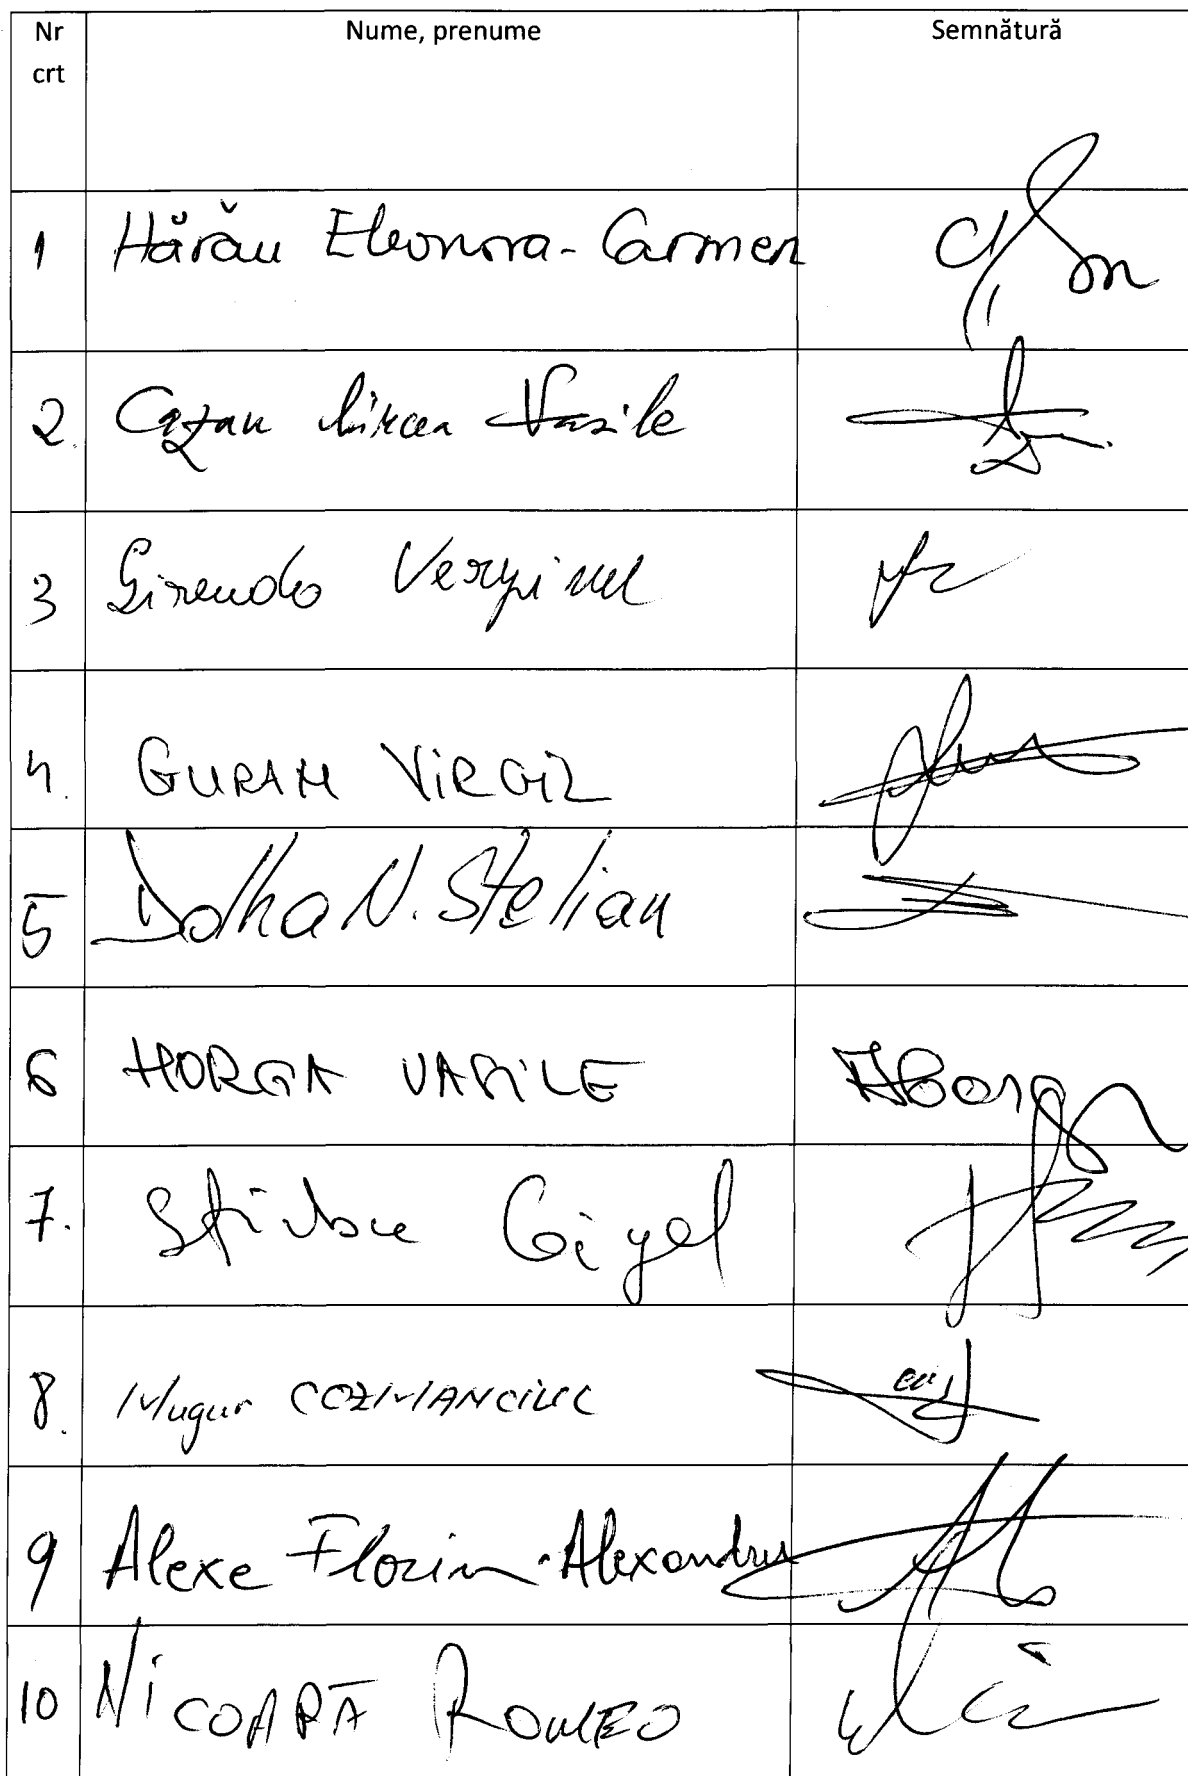 Nr crt Nume, prenume Semnătură
1 Hărău Eleonora-Carmen
2. Cazan Mircea Vasile
3 Girendo Verginel
4. GURAN VIRGIL
5 Dolha N. Stelian
6 HORGA VASILE Horga
7. Știrbu Gigel
8. Mugur COZMANCIUC
9 Alexe Florin-Alexandru
10 NICOARĂ ROMEO